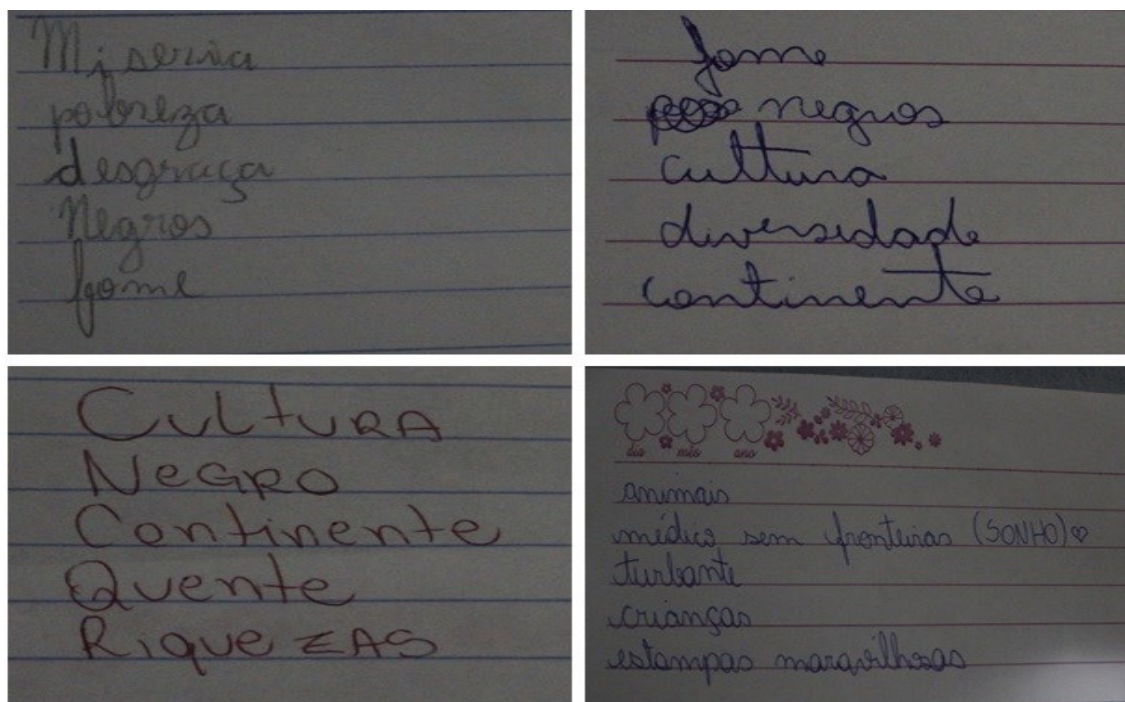 Miseria
pobreza
desgraça
Negros
fome
fome
negros
cultura
diversidade
continente
CULtuRA
NeGRO
Continente
Quente
RiqueZAS
dia mês ano
animais
médico sem fronteiras (SONHO)♡
turbante
crianças
estampas maravilhosas